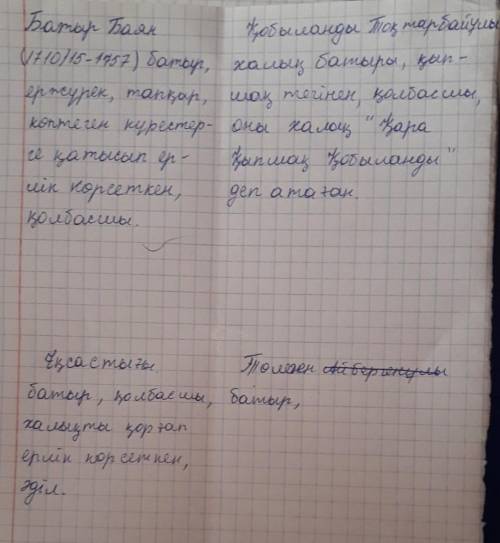 Батыр Баян
(1710/15-1757) батыр,
ержүрек, тапқар,
көптеген күрестер-
ге қатысып ер-
лік көрсеткен,
қолбасшы.
Қобыланды Тоқтарбайұлы
халық батыры, қып-
шақ тегінен, қолбасшы,
оны халық "Қара
Қыпшақ Қобыланды"
деп атаған.
Ұқсастығы
батыр, қолбасшы,
халықты қорғап
ерлік көрсеткен,
әділ.
Төлеген
батыр,